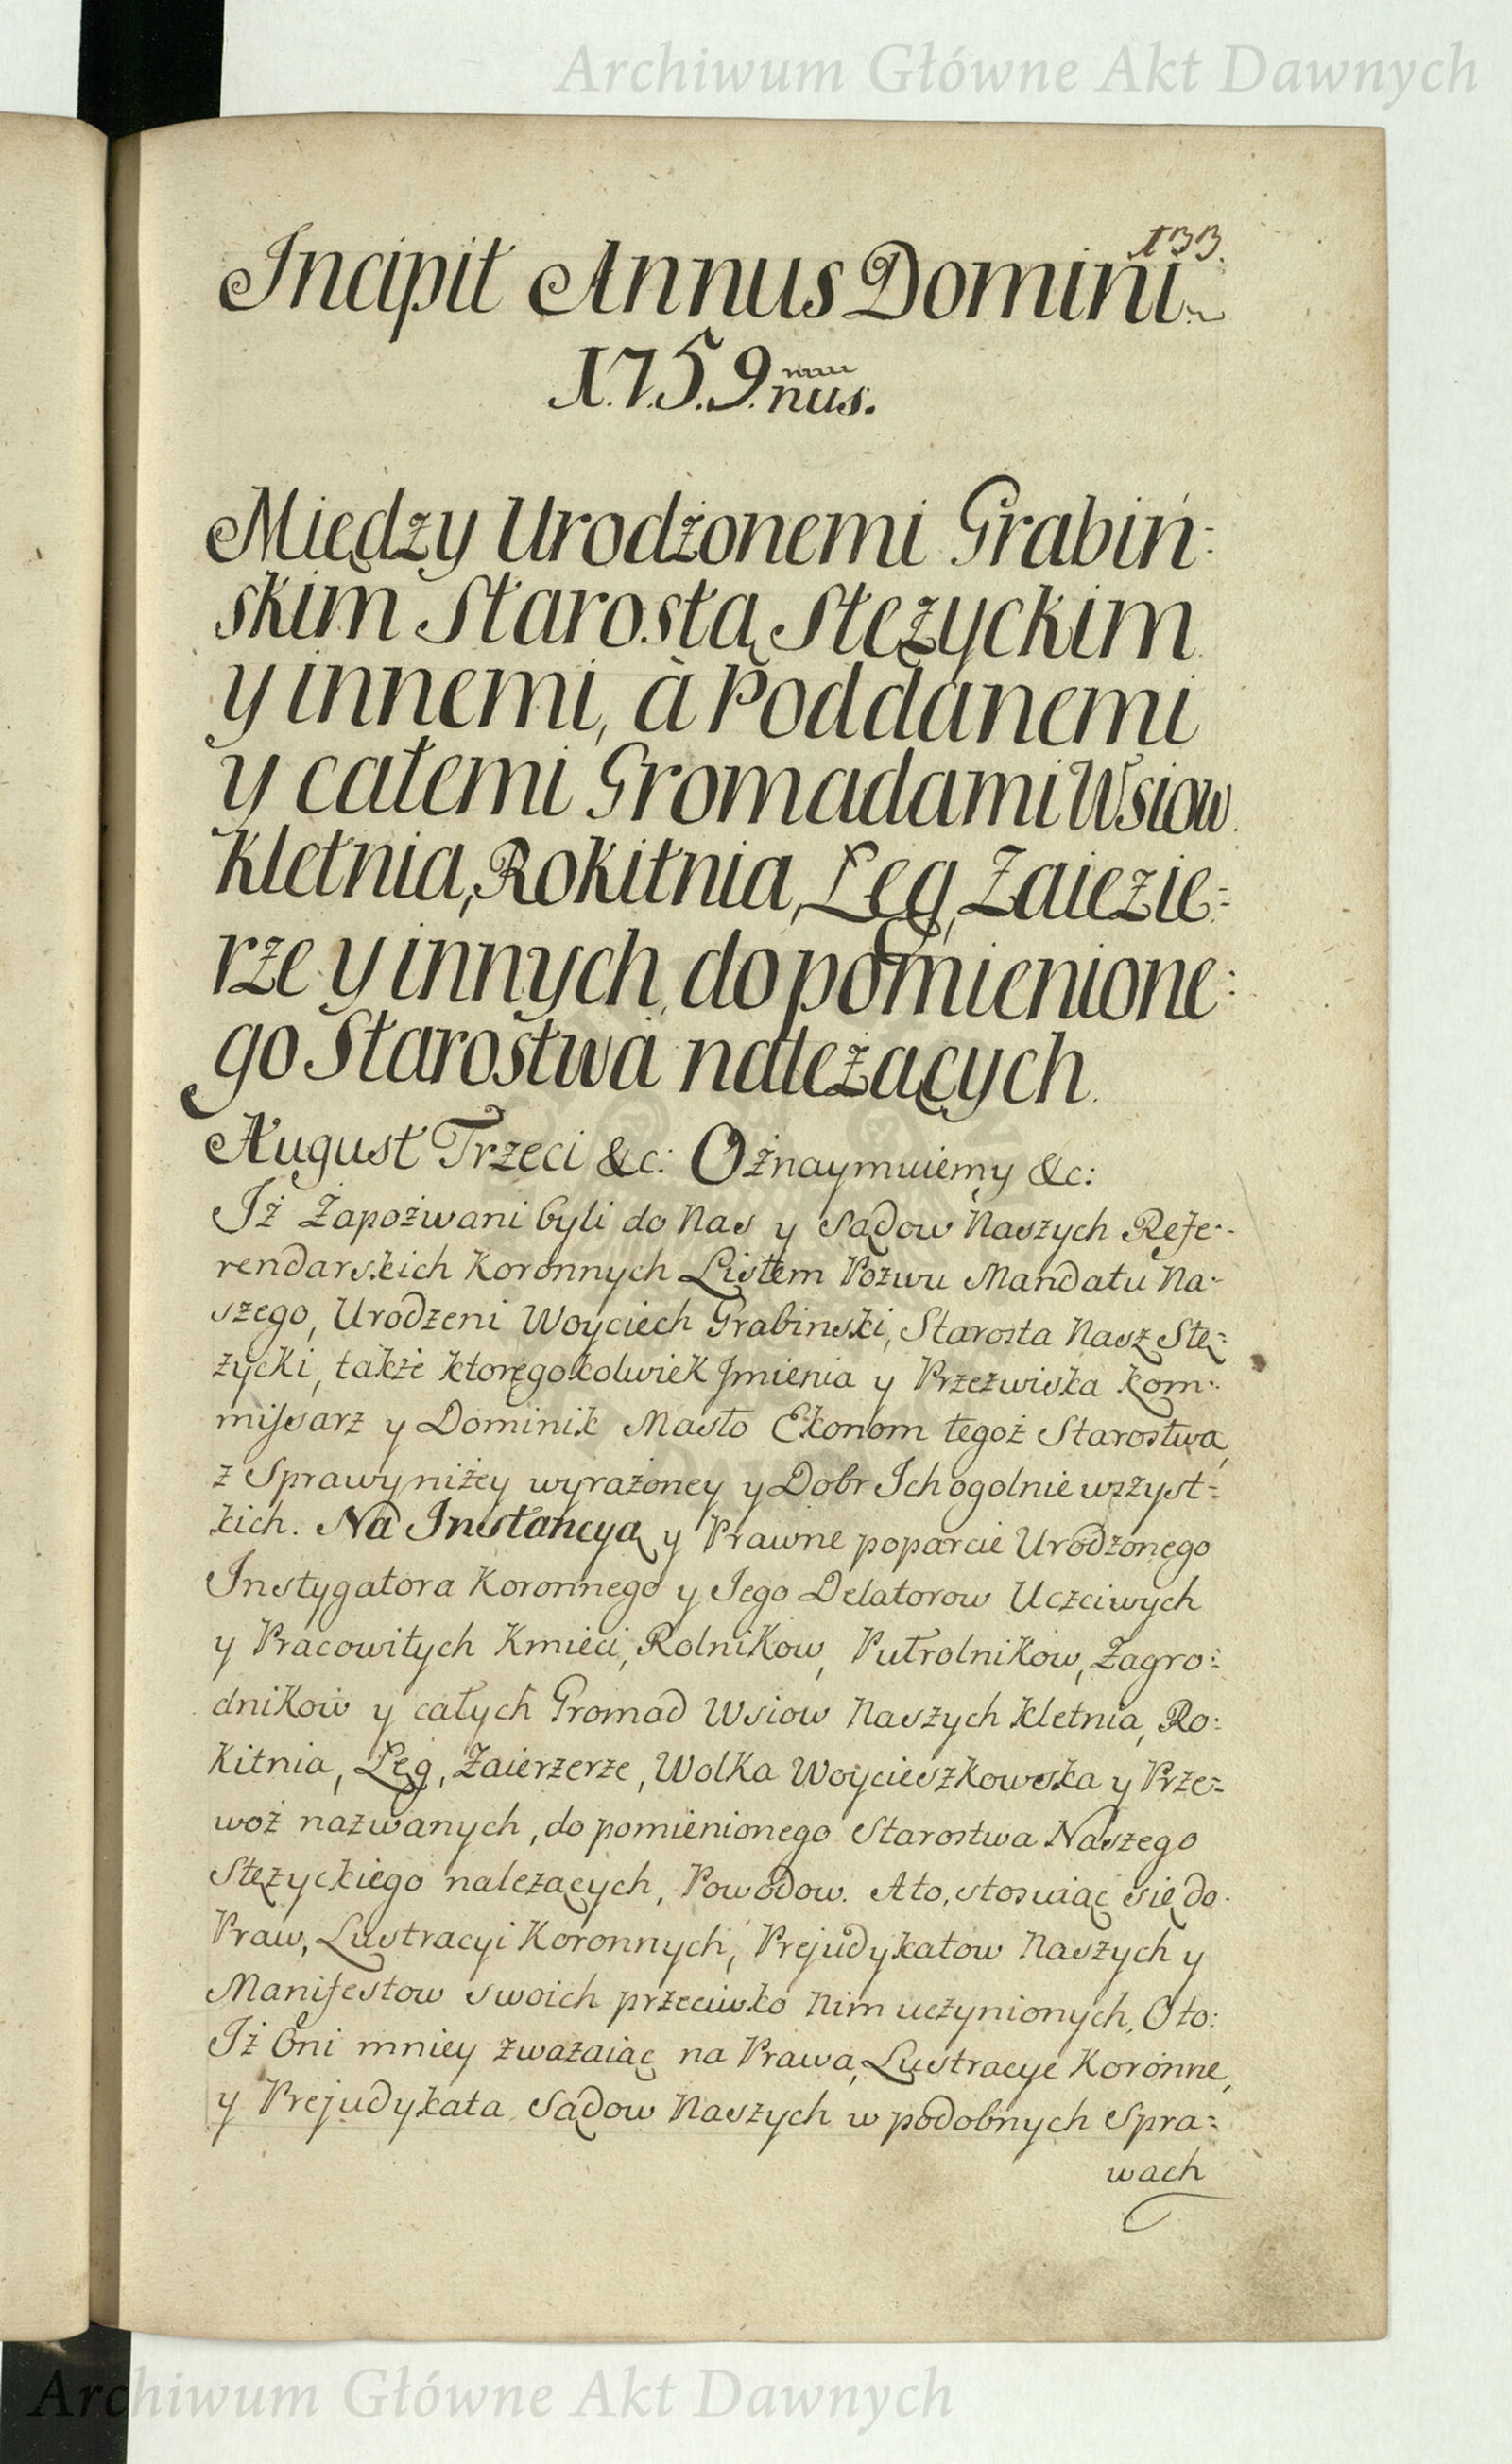 Archiwum Główne Akt Dawnych
133.
Incipit Annus Domini
1.7.5.9. nus.
Między Urodżonemi Grabiń:
skim Starostą Stężyckim
y innemi, à Poddanemi
y całemi Gromadami Wsiow
Kletnia, Rokitnia, Łęg, Zaiezie:
rze y innych, do pomienione:
go Starostwa należących.
August Trzeci &c: Ożnaymuiemy &c:
Iż Żapożwani byli do Nas y Sądow Naszych Refe:
rendarskich Koronnych Listem Pożwu Mandatu Na:
szego, Urodzeni Woyciech Grabinski, Starosta Nasz Stę:
życki, także ktoregokolwiek Jmienia y Przeżwiska Kom:
missarz y Dominik Masło Ekonom tegoż Starostwa,
z Sprawy niżey wyrażoney y Dobr Ich ogolnie wszyst:
kich. Na Instancyą y Prawne poparcie Urodżonego
Instygatora Koronnego y Iego Delatorow Uczciwych
y Pracowitych Kmieci, Rolnikow, Pułrolnikow, Zagro:
dnikow y całych Gromad Wsiow Naszych Kletnia, Ro:
kitnia, Łęg, Zaierzerze, Wolka Woycieszkowska y Prze:
woż nazwanych, do pomienionego Starostwa Naszego
Stężyckiego należących, Powodow. A to, stosuiąc się do
Praw, Lustracyi Koronnych, Prejudykatow Naszych y
Manifestow swoich przeciwko Nim uczynionych, O to:
Iż Oni mniey zważaiąc na Prawa, Lustracye Koronne,
y Prejudykata Sądow Naszych w podobnych Spra:
wach
Archiwum Główne Akt Dawnych